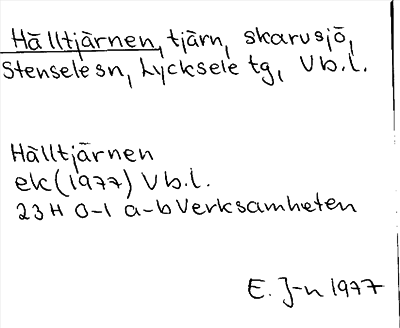 Hälltjärnen, tjärn, skarvsjö,
Stensele sn, Lycksele tg, Vb.l.
Hälltjärnen
ek (1977) Vb.l.
23 H 0-1 a-b Verksamheten
E. J-n 1977